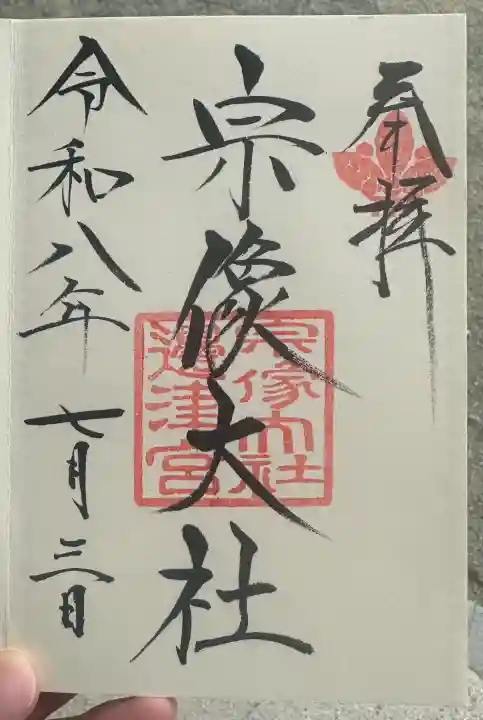 奉拝
宗像大社
宗像大社
邊津宮
令和八年 七月三日